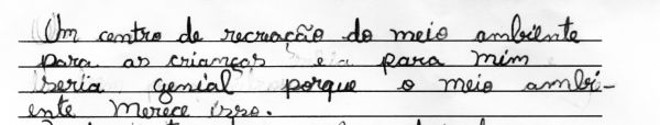 Um centro de recreação do meio ambiente
para as crianças e para mim
seria genial porque o meio ambi-
ente merece isso.